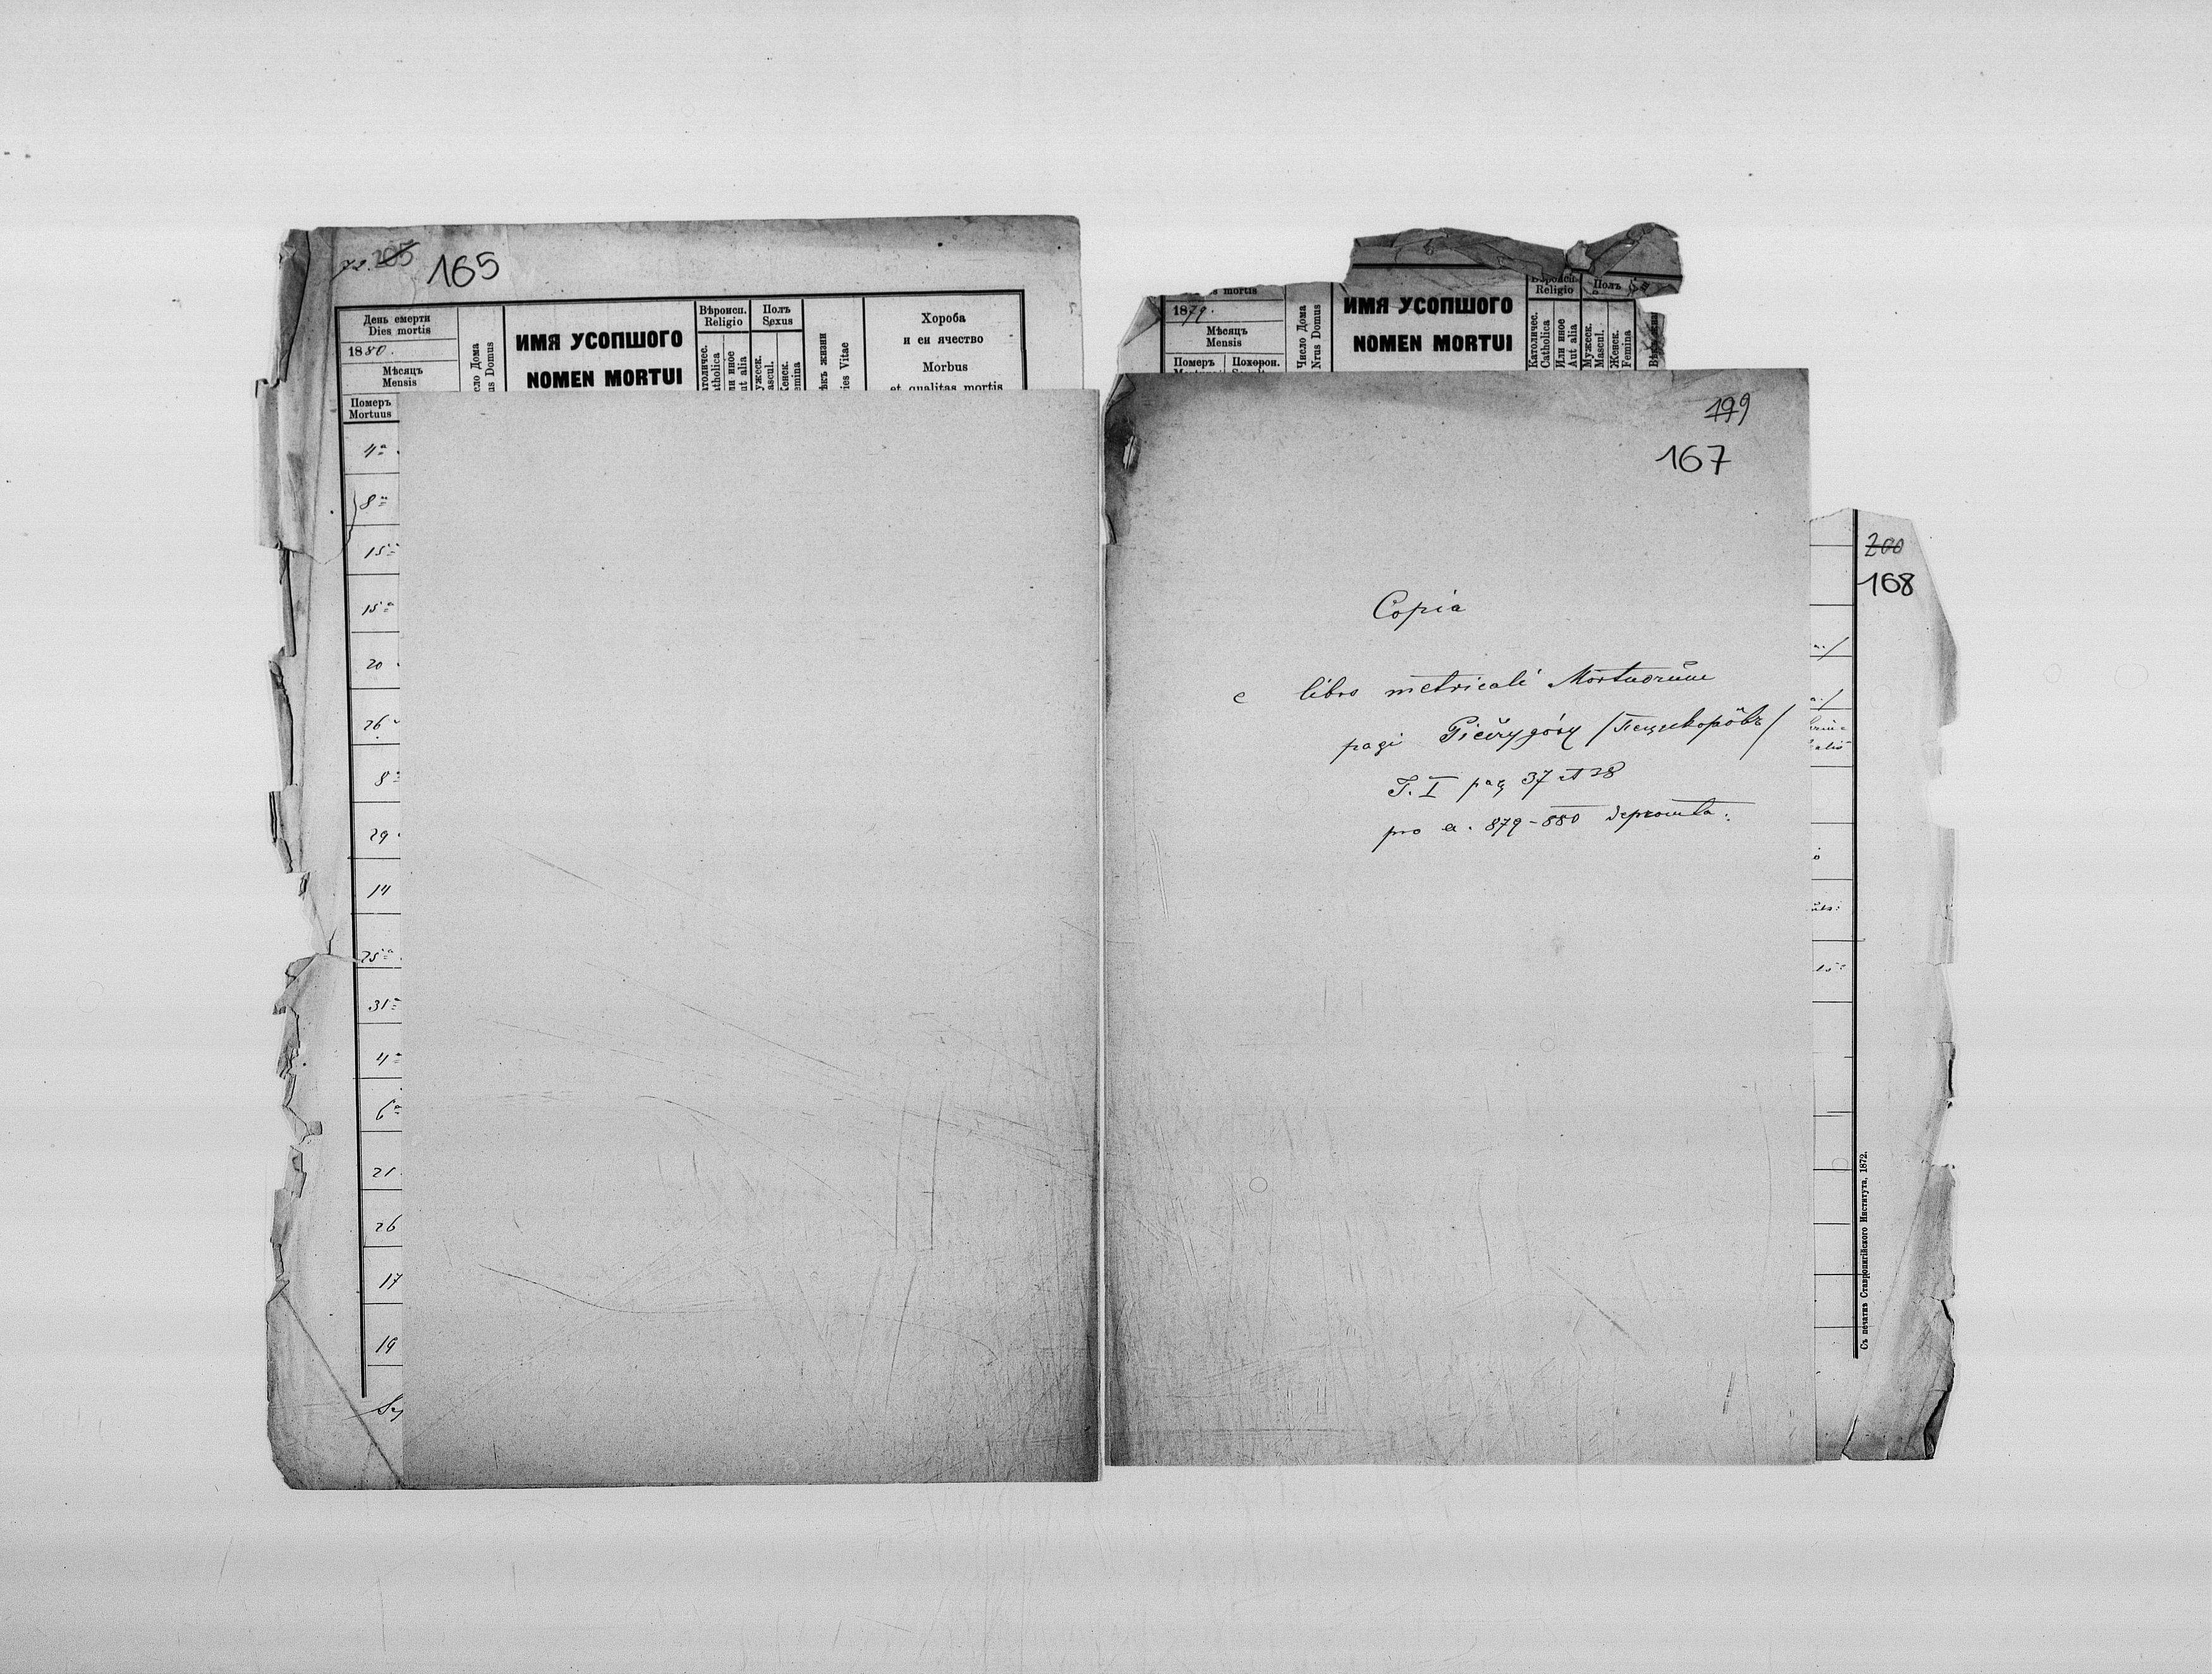 165
День смерти
Dies mortis
1880.
Мѣсяцъ
Mensis
Померъ
Mortuus
сло Дома
us Domus
ИМЯ УСОПШОГО
NOMEN MORTUI
Вѣроисп.
Religio
атоличес.
atholica
ли иное
ut alia
Полъ
Sexus
ужеск.
ascul.
Женск.
emina
ѣкъ жизни
ies Vitae
Хороба
и еи ячество
Morbus
et qualitas mortis
4ª
8ª
15ª
15ª
20
26
8ª
29
14
25ª
31ª
4ª
6ª
21
26
17
19
s mortis
1879.
Мѣсяцъ
Mensis
Померъ
Похорон.
Число Дома
Nrus Domus
ИМЯ УСОПШОГО
NOMEN MORTUI
Вѣроисп.
Religio
Католичес.
Catholica
Или иное
Aut alia
Полъ
Мужеск.
Mascul.
Женск.
Femina
199
167
Copia
e libro metricali Mortuorum
pagi
T. I pag 37 et 38
pro a. 879-880 deprompta.
200
168
15ª
Съ печатнѣ Ставропигійского Института, 1872.